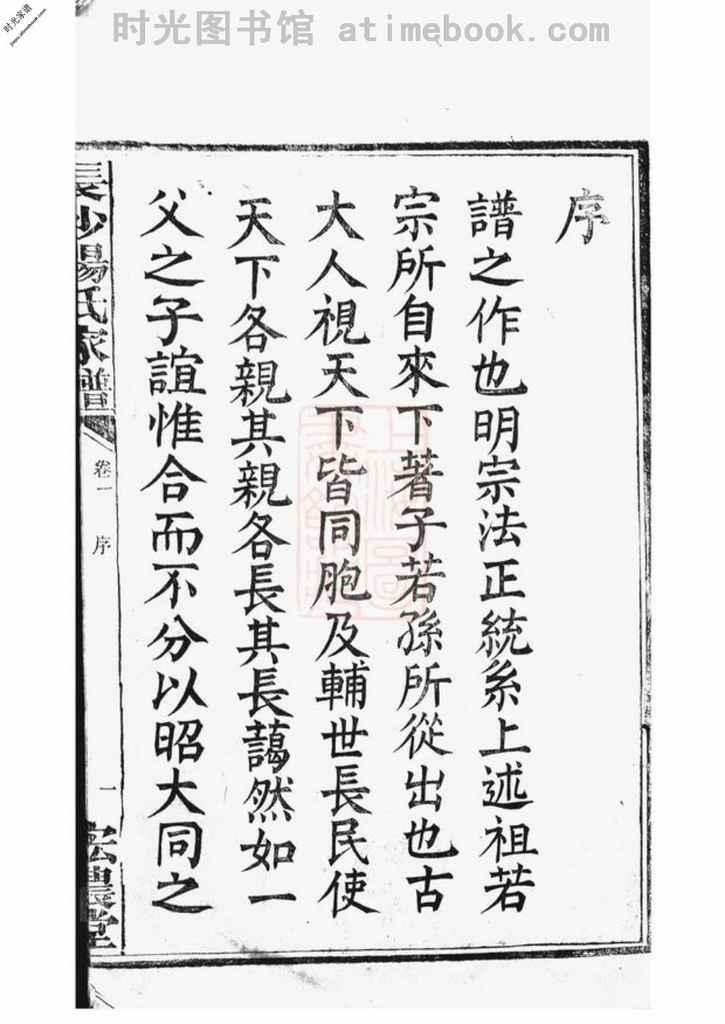 时光图书馆 atimebook.com
时光家谱
序
譜之作也明宗法正統系上述祖若
宗所自來下著子若孫所從出也古
大人視天下皆同胞及輔世長民使
天下各親其親各長其長藹然如一
父之子誼惟合而不分以昭大同之
長沙楊氏家譜
卷一 序
一
宏農堂